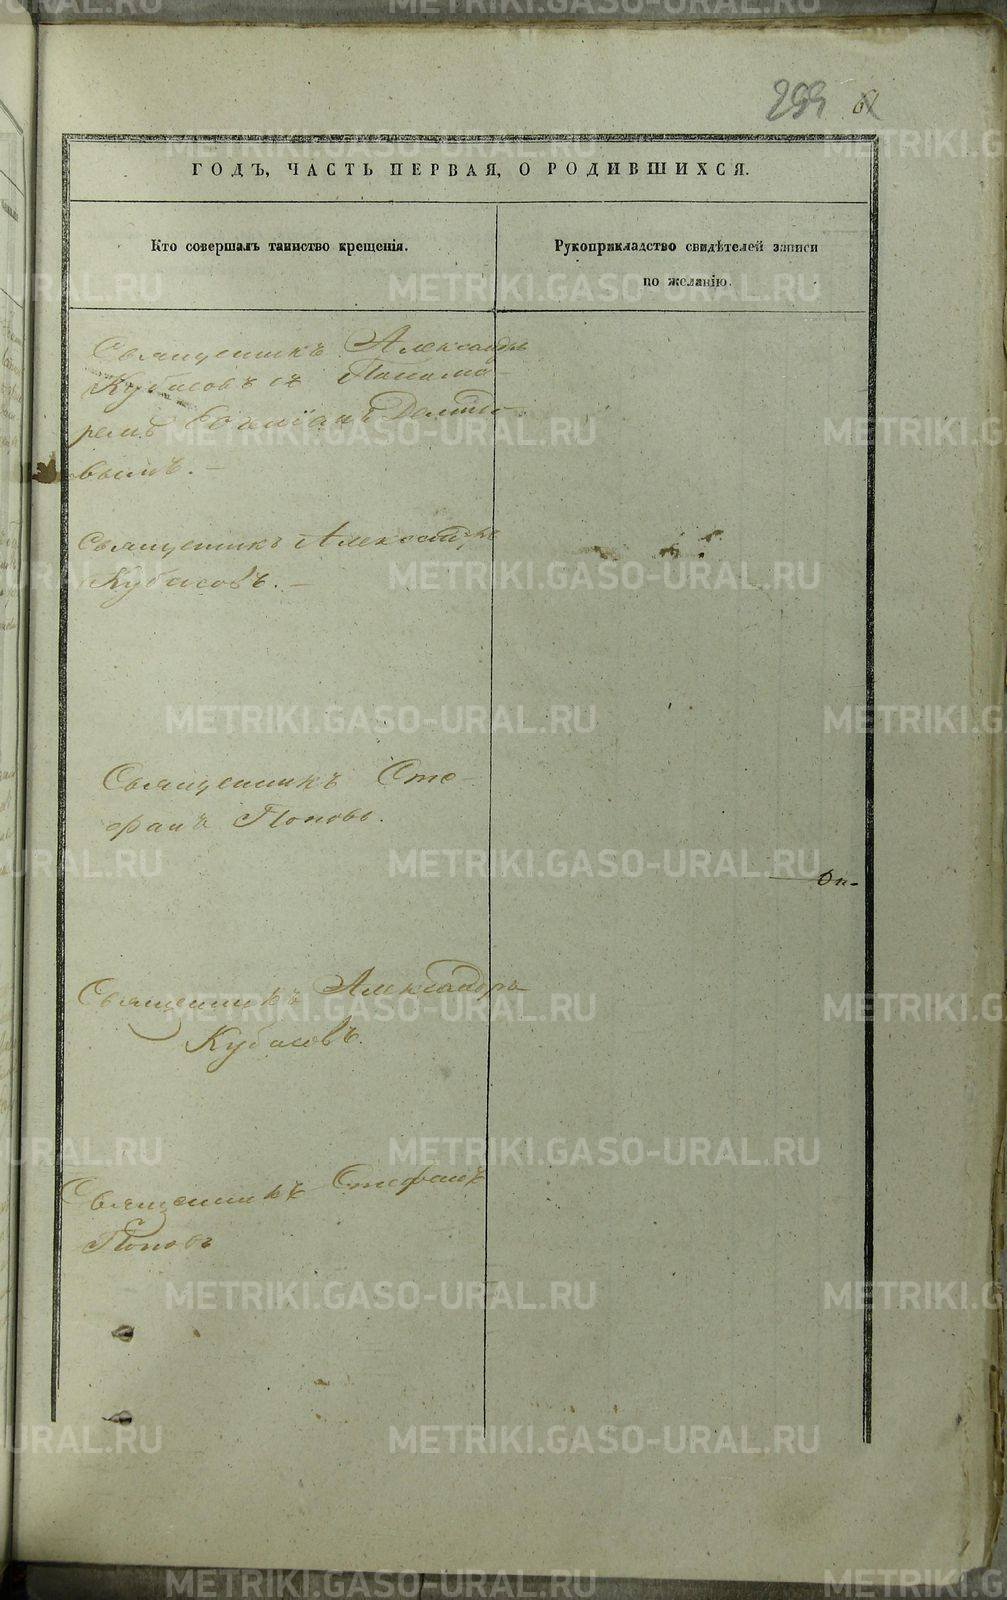 293 61
ГОДЪ, ЧАСТЬ ПЕРВАЯ, О РОДИВШИХСЯ.
Кто совершалъ таинство крещенія.
Рукоприкладство свидѣтелей записи
по желанію.
Священникъ Александръ
Кубасовъ съ Понома-
ремъ
вымъ. –
Священникъ Александръ
Кубасовъ. –
Священникъ Сте-
фанъ Поповъ.
Священникъ Александръ
Кубасовъ.
Священникъ Стефанъ
Поповъ
METRIKI.GASO-URAL.RU